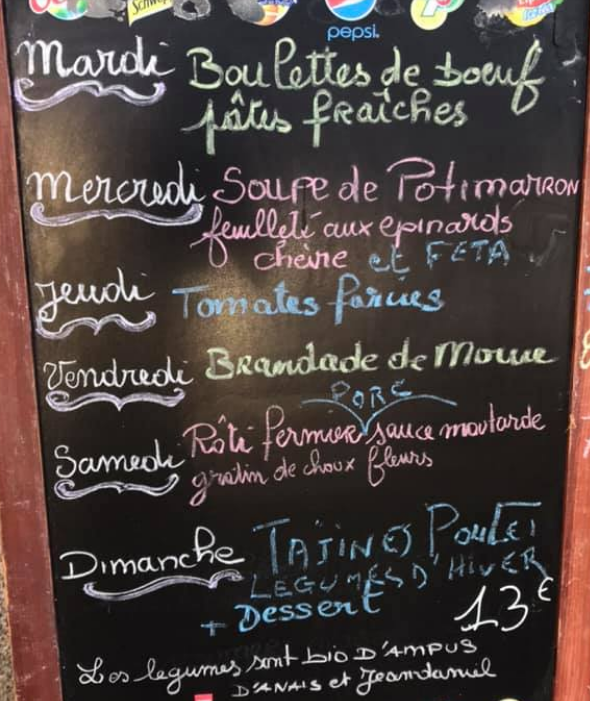 Schwep
pepsi.
Mardi Boulettes de boeuf
pâtes fraîches
Mercredi Soupe de Potimarron
feuilleté aux epinards
chèvre et FETA
Jeudi Tomates farcies
Vendredi Brandade de Morue
PORC
Samedi Rôti fermier sauce moutarde
gratin de choux fleurs
Dimanche TAJINES Poulet
LEGUMES D'HIVER
+ Dessert 13€
Les legumes sont bio D'AMPUS
D'ANAIS et Jeandaniel